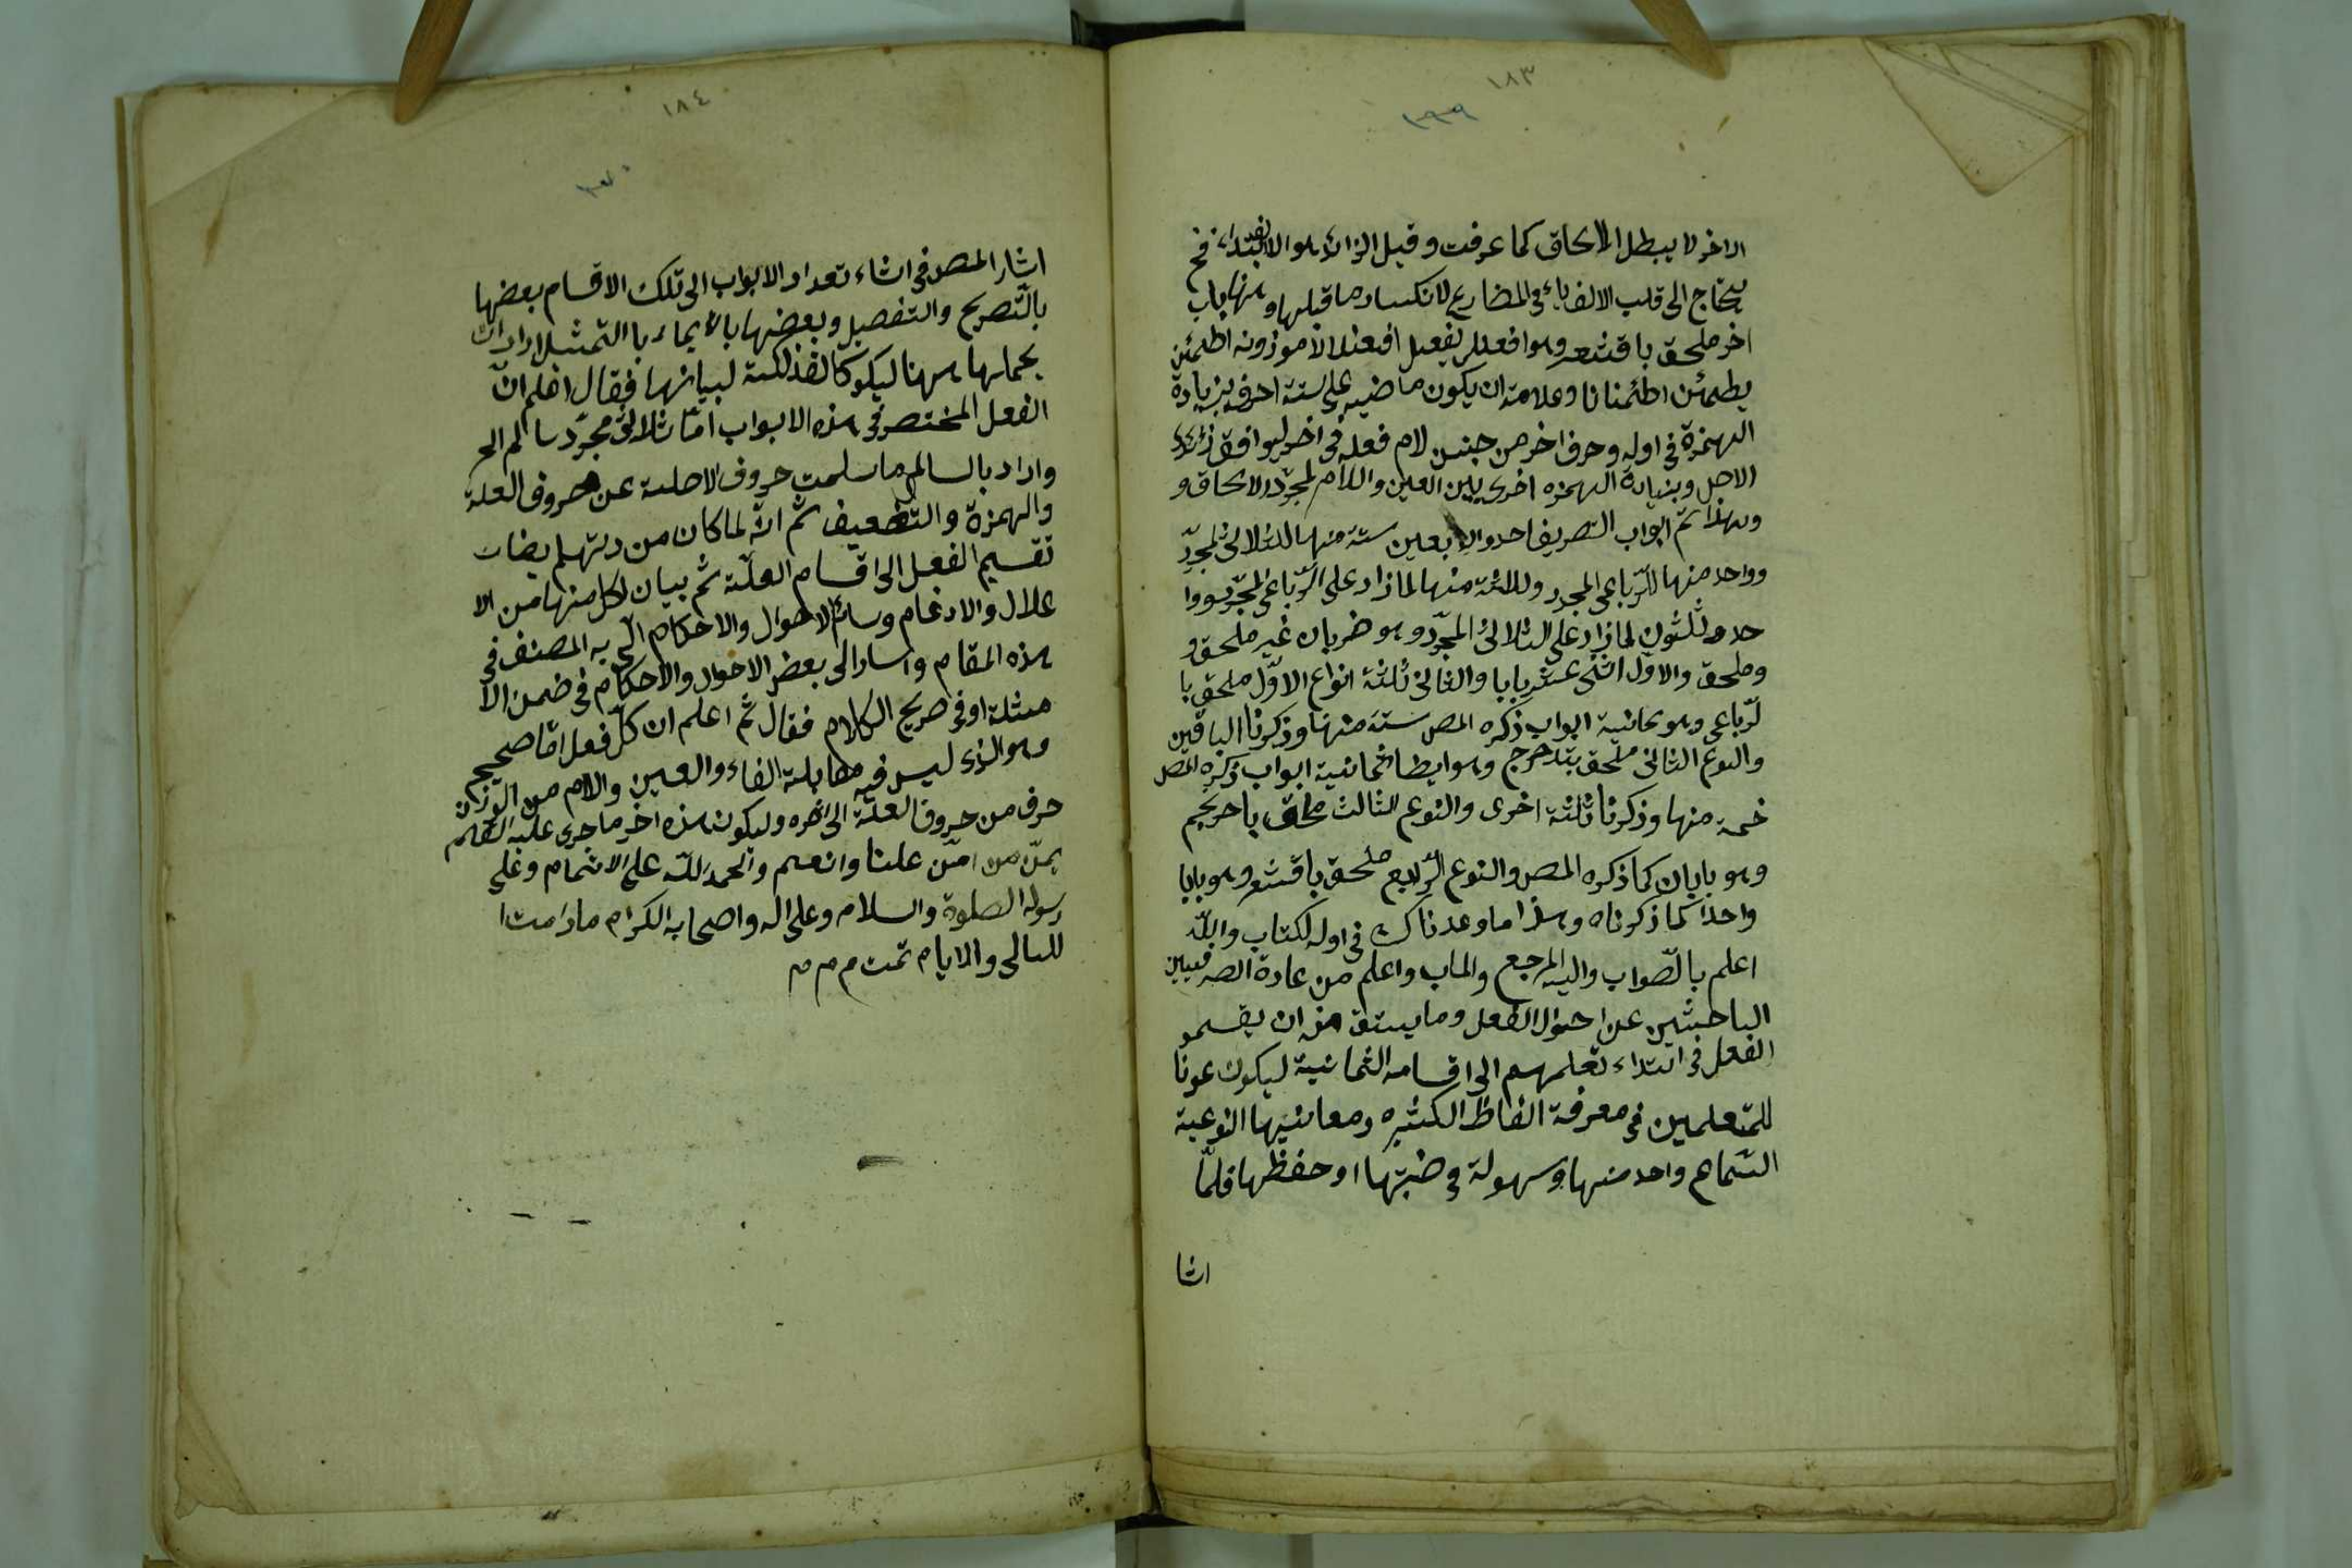 ١٨٣
١٣٩
الاخر لا يبطل الالحاق كما عرفت وقيل الزائد هو الالف ابتداء فح
يحتاج الى قلب الالف ياء فى المضارع لانكسار ما قبلها ومنها باب
اخر ملحق باقشعر وهو افعلل يفعلل افعنلالا موزونه اطمئن
يطمئن اطئمنانا وعلامته ان يكون ماضيه على ستة احرف بزيادة
الهمزة فى اوله وحرف اخر من جنس لام فعله فى اخر ليوافق زائد
الاصل وبزيادة الهمزه اخرى بين العين واللام لمجرّد الالحاق و
وبهذا تمّ ابواب التصريف احد والاربعين ستة منها للثلاثى المجرّد
وواحد منها للرّباعى المجرد وثلاثة منها لما زاد على الرّباعى المجرّد ووا
حد وثلثون لما زاد على الثلاثى المجرّد وهو ضربان غير ملحق و
وملحق والاوّل اثنى عشر بابا والثانى ثلثة انواع الاوّل ملحق با
لرّباعى وهو ثمانية ابواب ذكره المص ستة منها وذكرنا الباقين
والنوع الثانى ملحق بتدحرج وهو ايضا ثمانية ابواب ذكره المص
خمة منها وذكرنا ثلثة اخرى والنوع الثالث ملحق باحرنجم
وهو بابان كما ذكره المص والنوع الرّابع ملحق باقشعر وهو بابا
واحدا كما ذكرناه وهذا ما وعدناك فى اوله الكتاب والله
اعلم بالصّواب واليه المرجع والماب واعلم من عادة الصرفيين
الباحثين عن احوال الفعل وما يشتق منه ان يقسمو
الفعل فى ابتداء تعلمهم الى اقسامه الثمانية ليكون عونا
للمتعلمين فى معرفة الفاظ الكثيره ومعانيها النوعية
واحد منها وسهولة فى ضبتها او حفظها فلمّا
اشا
١٨٤
١٤٠
اشار المص فى اثناء تعداد الابواب الى تلك الاقسام بعضها
بالتّصريح والتفصيل وبعضها بالايماء با التمثيل اراد ان
يجملها ههنا ليكو كالفذلكة لبيانها فقال اعلم انّ
الفعل المنحصر فى هذه الابواب امّا ثلاثى مجرّد سالم الخ
واراد بالسالم ما سلمت حروف الاصلية عن حروف العلة
والهمزة والتضعيف ثمّ انّه لما كان من دئبهم ايضا
تقسيم الفعل الى اقسام العلّة ثم بيان لكل منها من الا
علال والادغام وسائر الاحوال والاحكام اتى به المصنف فى
هذه المقام واشار الى بعض الاحوال والاحكام فى ضمن الا
مثلة اوفى صريح الكلام فقال ثم اعلم ان كلّ فعل امّا صحيح
وهو الذى ليس فيه مقابلة الفاء والعين واللام من الوزان
حرف من حروف العلّة الى اخره وليكون هذه اخر ما جرى عليه القلم
بمنّ من امّن علنا وانعم والحمد للّه على الاتمام وعلى
رسوله الصلوة والسلام وعلى اله واصحابه الكرام ما دامت ا
لليالى والايام تمت م م م